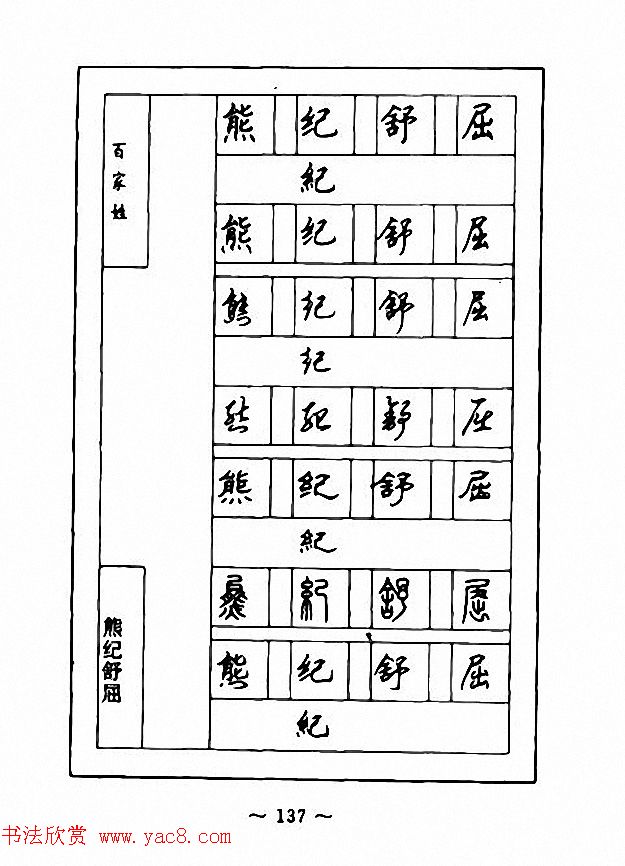 百家姓
熊纪舒屈
熊 纪 舒 屈
紀
熊 纪 舒 屈
熊 纪 舒 屈
纪
熊 纪 舒 屈
熊 纪 舒 屈
紀
熊 紀 舒 屈
熊 纪 舒 屈
紀
~ 137 ~
书法欣赏 www.yac8.com